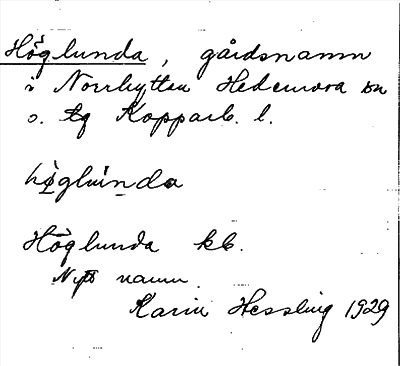 Höglunda, gårdsnamn
i Norrhyttan Hedemora sn
o. tg Kopparb. l.
hi̱glùnda
Höglunda kb.
Nytt namn.
Karin Hessling 1929